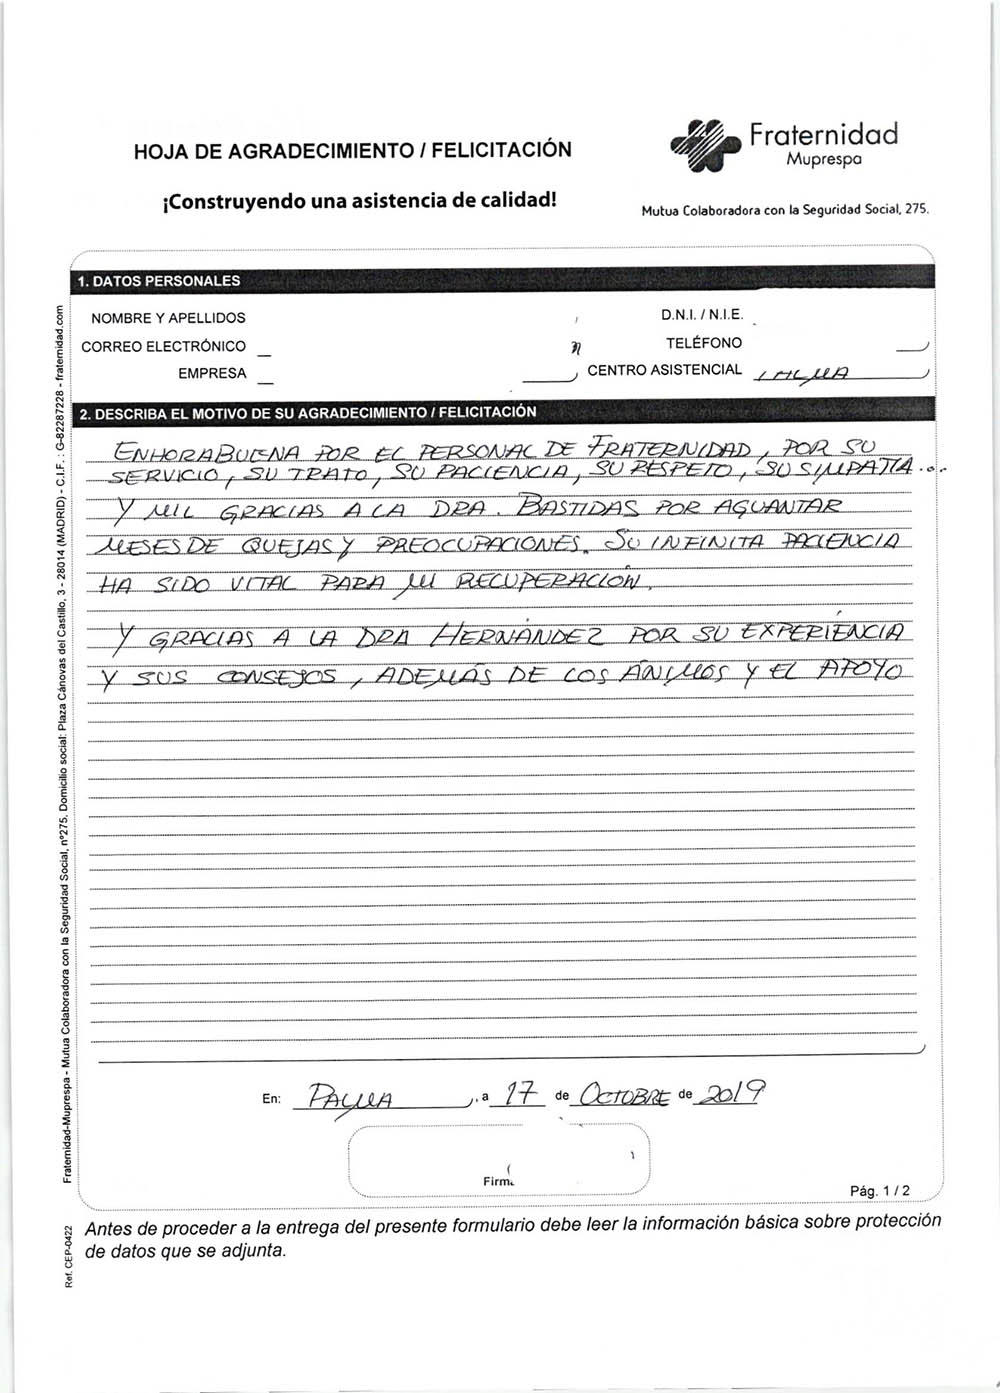 HOJA DE AGRADECIMIENTO / FELICITACIÓN
¡Construyendo una asistencia de calidad!
Fraternidad
Muprespa
Mutua Colaboradora con la Seguridad Social, 275.
1. DATOS PERSONALES
NOMBRE Y APELLIDOS
D.N.I. / N.I.E.
CORREO ELECTRÓNICO
TELÉFONO
EMPRESA
CENTRO ASISTENCIAL PALMA
2. DESCRIBA EL MOTIVO DE SU AGRADECIMIENTO / FELICITACIÓN
ENHORABUENA POR EL PERSONAL DE FRATERNIDAD, POR SU
SERVICIO, SU TRATO, SU PACIENCIA, SU RESPETO, SU SIMPATÍA...
Y MIL GRACIAS A LA DRA. BASTIDAS POR AGUANTAR
MESES DE QUEJAS Y PREOCUPACIONES. SU INFINITA PACIENCIA
HA SIDO VITAL PARA MI RECUPERACIÓN.
Y GRACIAS A LA DRA HERNÁNDEZ POR SU EXPERIENCIA
Y SUS CONSEJOS, ADEMÁS DE LOS ÁNIMOS Y EL APOYO
En: PALMA, a 17 de OCTUBRE de 2019
Firma
Pág. 1 / 2
Antes de proceder a la entrega del presente formulario debe leer la información básica sobre protección
de datos que se adjunta.
Fraternidad-Muprespa - Mutua Colaboradora con la Seguridad Social, nº275. Domicilio social: Plaza Cánovas del Castillo, 3 - 28014 (MADRID) - C.I.F. : G-82287228 - fraternidad.com
Ref. CEP-0422